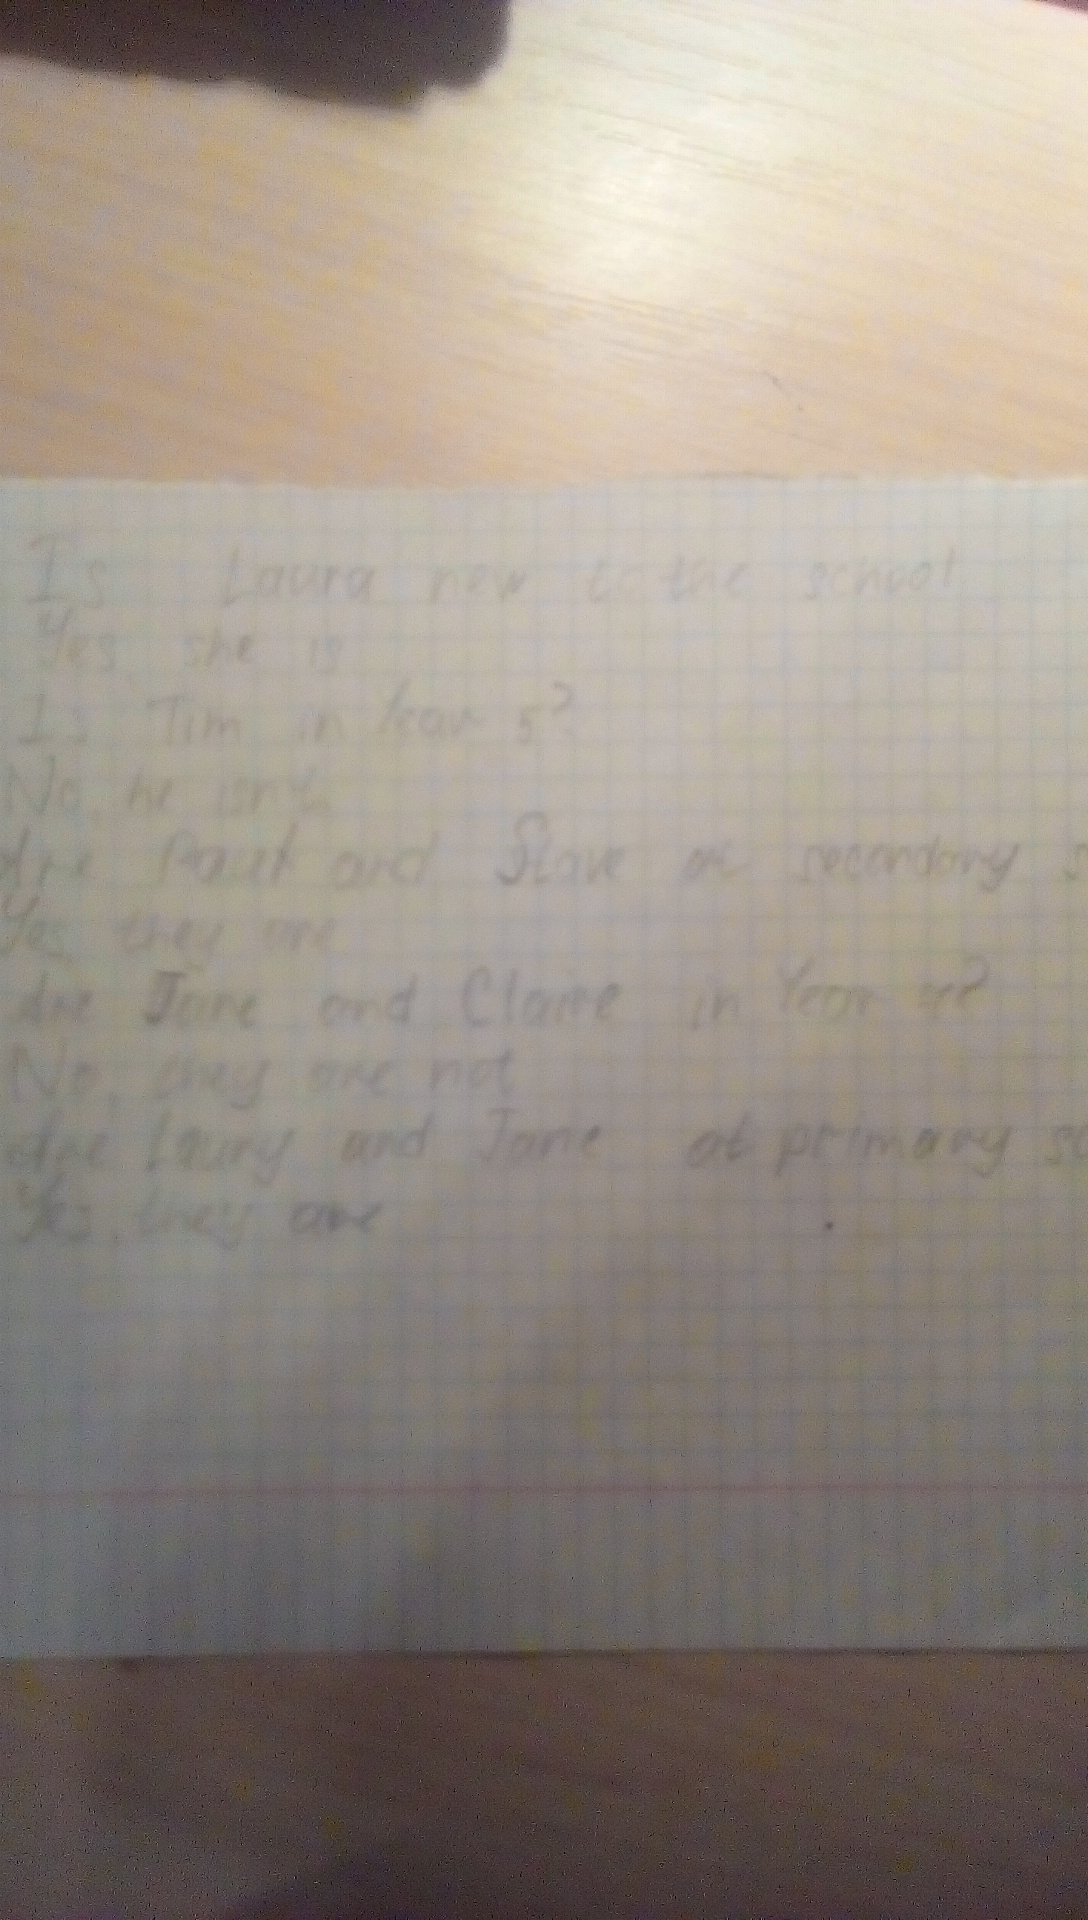 Is Laura new to the school
Yes, she is
Is Tim in Year 5?
No, he isn't.
Are Paul and Steve at secondary s
Yes they are
Are Jane and Claire in Year
No, they are not
Are and Jane at primary sc
Yes, they are